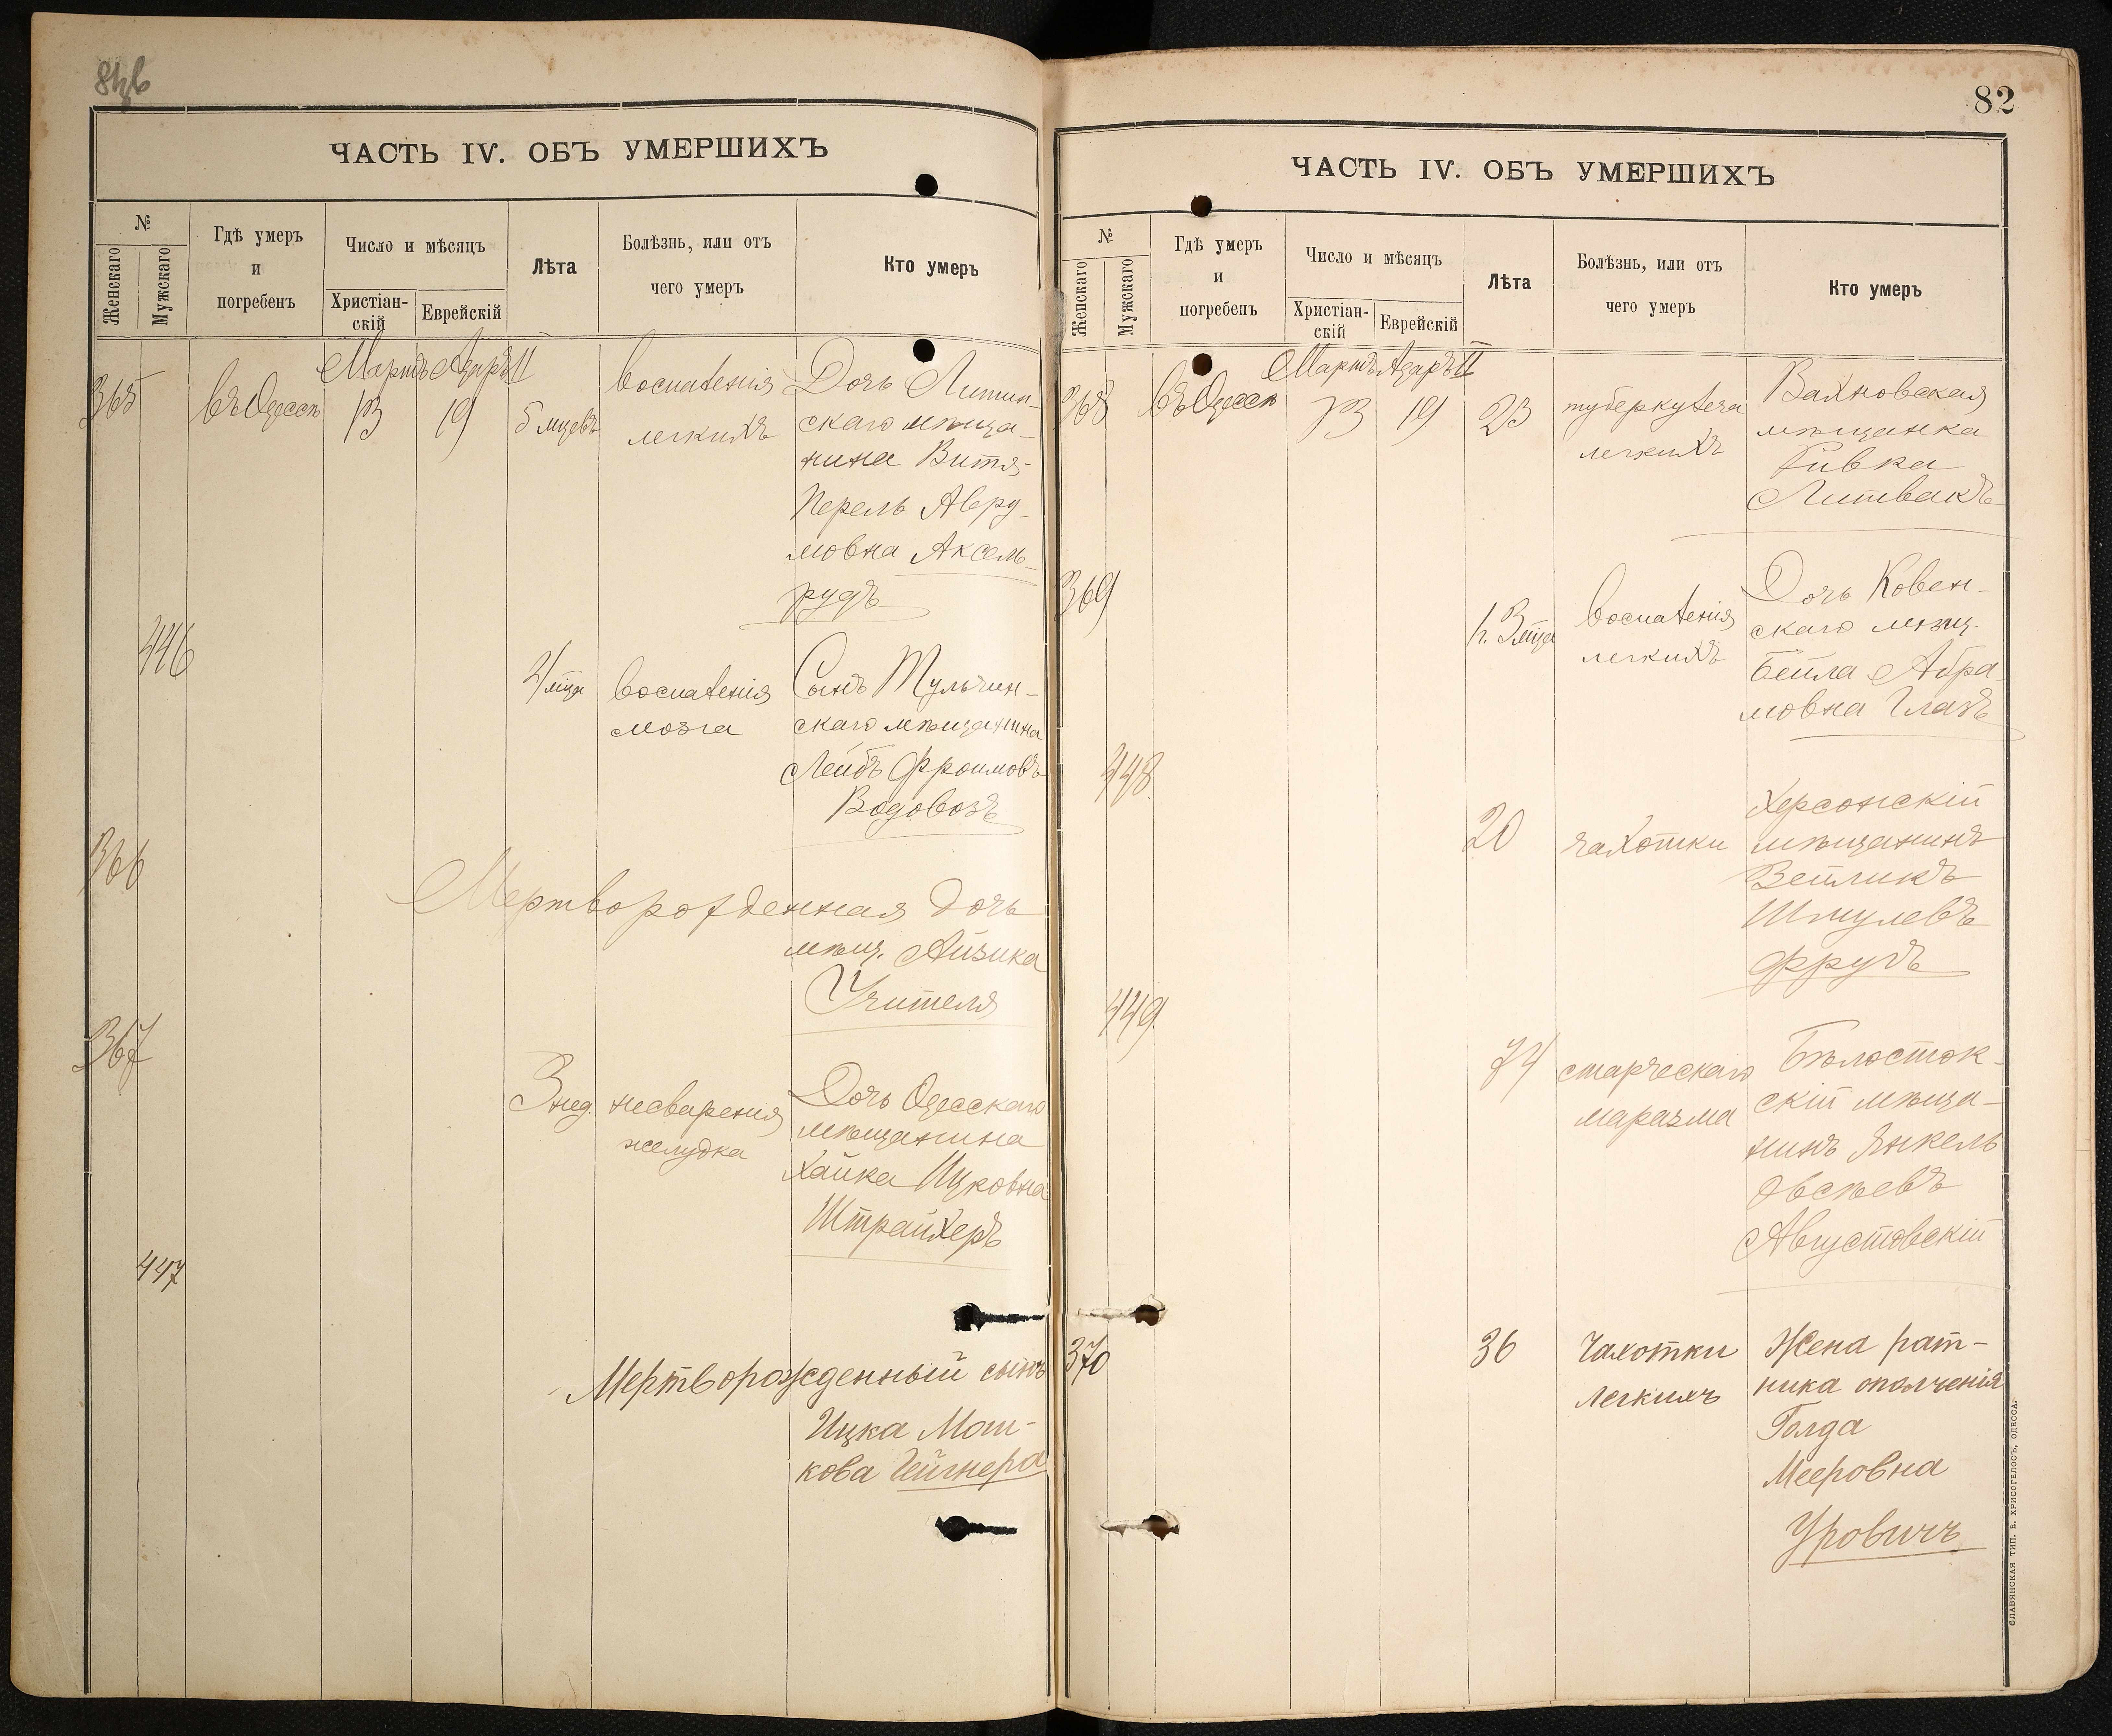 ЧАСТЬ IV. ОБЪ УМЕРШИХЪ
№
Женскаго
Мужскаго
Гдѣ умеръ
и
погребенъ
Число и мѣсяцъ
Христіан-
скій
Еврейскій
Лѣта
Болѣзнь, или отъ
чего умеръ
Кто умеръ
Мартъ Адаръ II
365 въ Одессѣ 13 19 5 мцевъ
воспаленія
легкихъ
Дочь Литин-
скаго мѣща-
нина Витя-
Перель Авру-
мовна Аксель-
рудъ
446 4 мца
воспаленія
мозга
Сынъ Тульчин-
скаго мѣщанина
Лейбъ Фроимовъ
Водовозъ
366
Мертворожденная дочь
мѣщ. Айзика
Учителя
367 3 нед.
несваренія
желудка
Дочь Одесскаго
мѣщанина
Хайка Ицковна
Штрайхеръ
447
Мертворожденный сынъ
Ицка Мош-
кова Гейгнера
82
ЧАСТЬ IV. ОБЪ УМЕРШИХЪ
№
Женскаго
Мужскаго
Гдѣ умеръ
и
погребенъ
Число и мѣсяцъ
Христіан-
скій
Еврейскій
Лѣта
Болѣзнь, или отъ
чего умеръ
Кто умеръ
Мартъ Адаръ II
368 въ Одессѣ 13 19 23
туберкулеза
легкихъ
Вахновская
мѣщанка
Ривка
Литвакъ
369 1 г. 3 мца
воспаленія
легкихъ
Дочь Ковен-
скаго мѣщ.
Бейла Абра-
мовна Глазъ
448 20
чахотки
Херсонскій
мѣщанинъ
Зейликъ
Шмулевъ
Фрудъ
449 74
старческаго
маразма
Бѣлосток-
скій мѣща-
нинъ Янкель
Овсѣевъ
Августовскій
370 36
Чахотки
легкихъ
Жена рат-
ника ополченія
Голда
Мееровна
Уровичъ
СЛАВЯНСКАЯ ТИП. Е. ХРИСОГЕЛОСЪ, ОДЕССА.